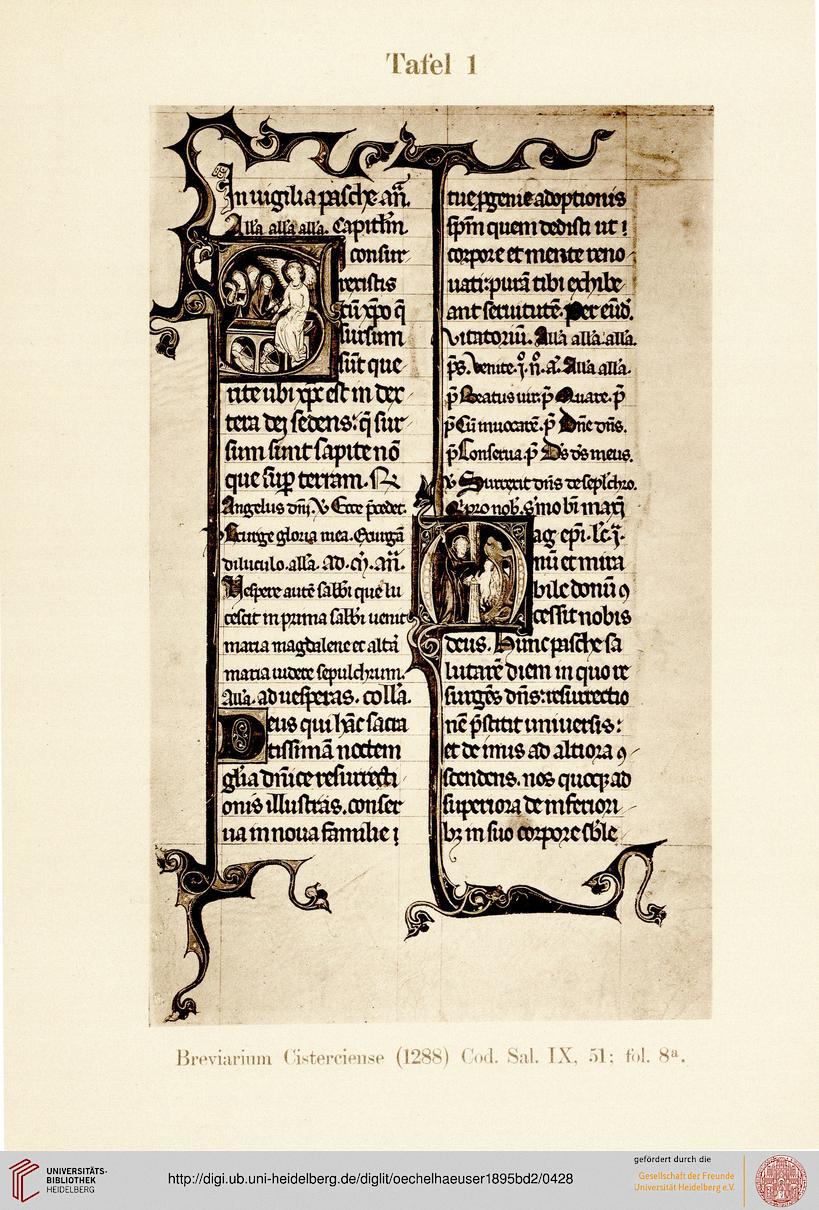 Tafel 1
In vigilia pasche añ.
All'a all'a all'a. Capitl'm.
Si consur
rexistis
cū xp̄o q̄
sursum
sūt que
rite ubi xp̄c est in dex
tera dei sedens: q̄ sur
sum sunt sapite nō
que sup̄ terram. R
Angelus dn̄i. V Ecce p̄cedet.
Exurge gloria mea. Exurgā
diluculo. all'a. ad. añ.
Vespere autē sabb̄i que lu
cescit in prima sabb̄i uenit
maria magdalene et alt̄a
maria uidere sepulchrum.
All'a. ad uesperas. coll'a.
Deus qui hāc sacra
tissimā noctem
gl'ia dn̄ice resurrecti
onis illustras. conser
ua in noua familie ı
tue p̄genie adoptionis
sp̄m quem dedisti ut ı
corpore et mente reno
uati: purā tibi exhibe
ant seruitutē. Per eūd'.
Vitatoriū. All'a all'a all'a.
p̄s. Venite. i. n̊. a. All'a all'a.
p̄ Beatus uir. p̄ Quare. p̄
p̄ Cū inuocarē. p̄ Dn̄e dn̄s.
p̄ Conserua. p̄ D's d's meus.
V Surrexit dn̄s de sepl'chro.
pro nob. S'mo b̄i maxı
ag ep̄i. l'c. ı.
nū et mira
bile donū ꝯ
cessit nobis
deus. Hunc pasche sa
lutarē diem in quo re
surgēs dn̄s: resurrectio
nē p̄stitit uniuersis:
et de imis ad altiora ꝯ
scendens. nos quoqꝫ ad
superiora de inferiori
bꝫ in suo corpore sb̄le
Breviarium Cisterciense (1288) Cod. Sal. IX, 51; fol. 8ᵃ.
UNIVERSITÄTS-
BIBLIOTHEK
HEIDELBERG
http://digi.ub.uni-heidelberg.de/diglit/oechelhaeuser1895bd2/0428
gefördert durch die
Gesellschaft der Freunde
Universität Heidelberg e.V.